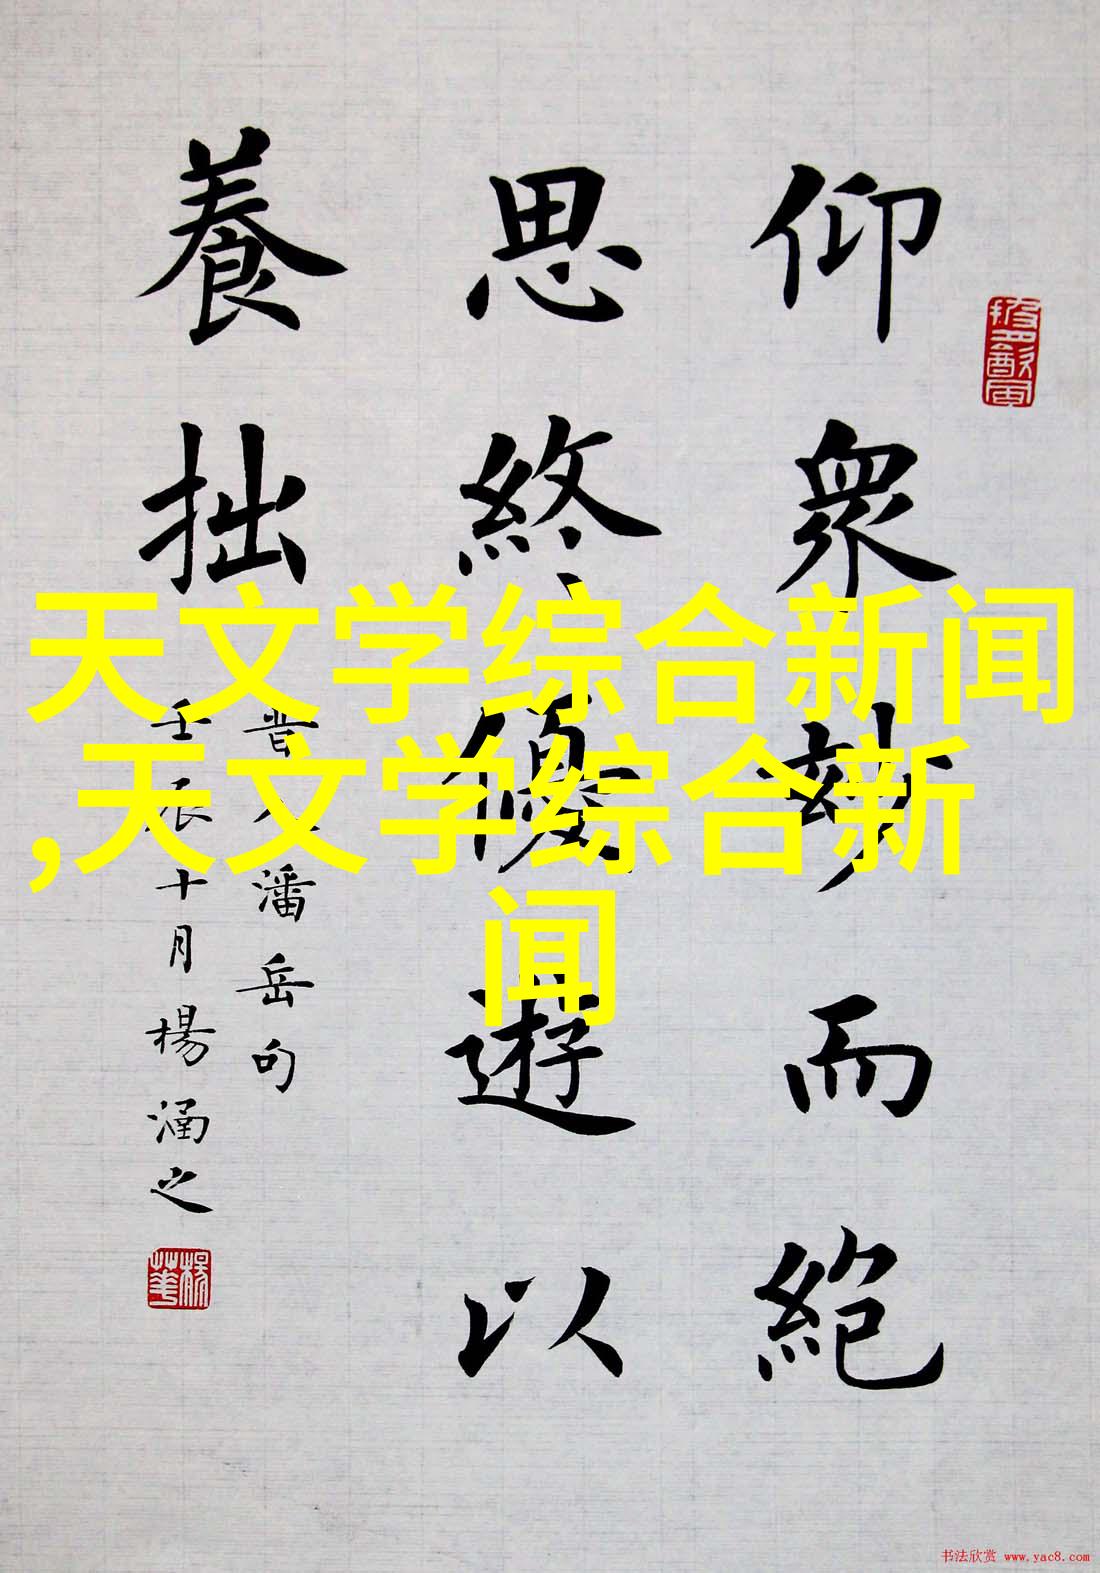 仰衆妙而絶
思終優遊以
養拙
晋人潘岳句
壬辰十月楊涵之
天文学综合新闻
,天文学综合新
闻
书法欣赏 www.yac8.com